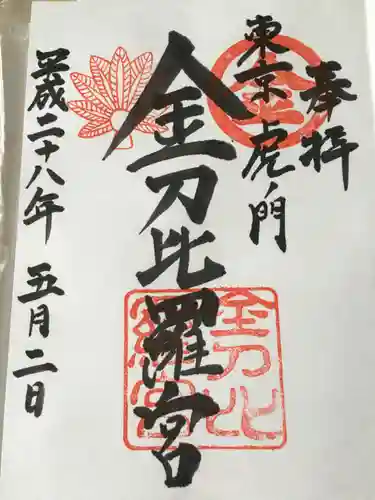 奉拝
東京虎ノ門
金刀比羅宮
平成二十八年 五月二日
金
金刀比
羅宮